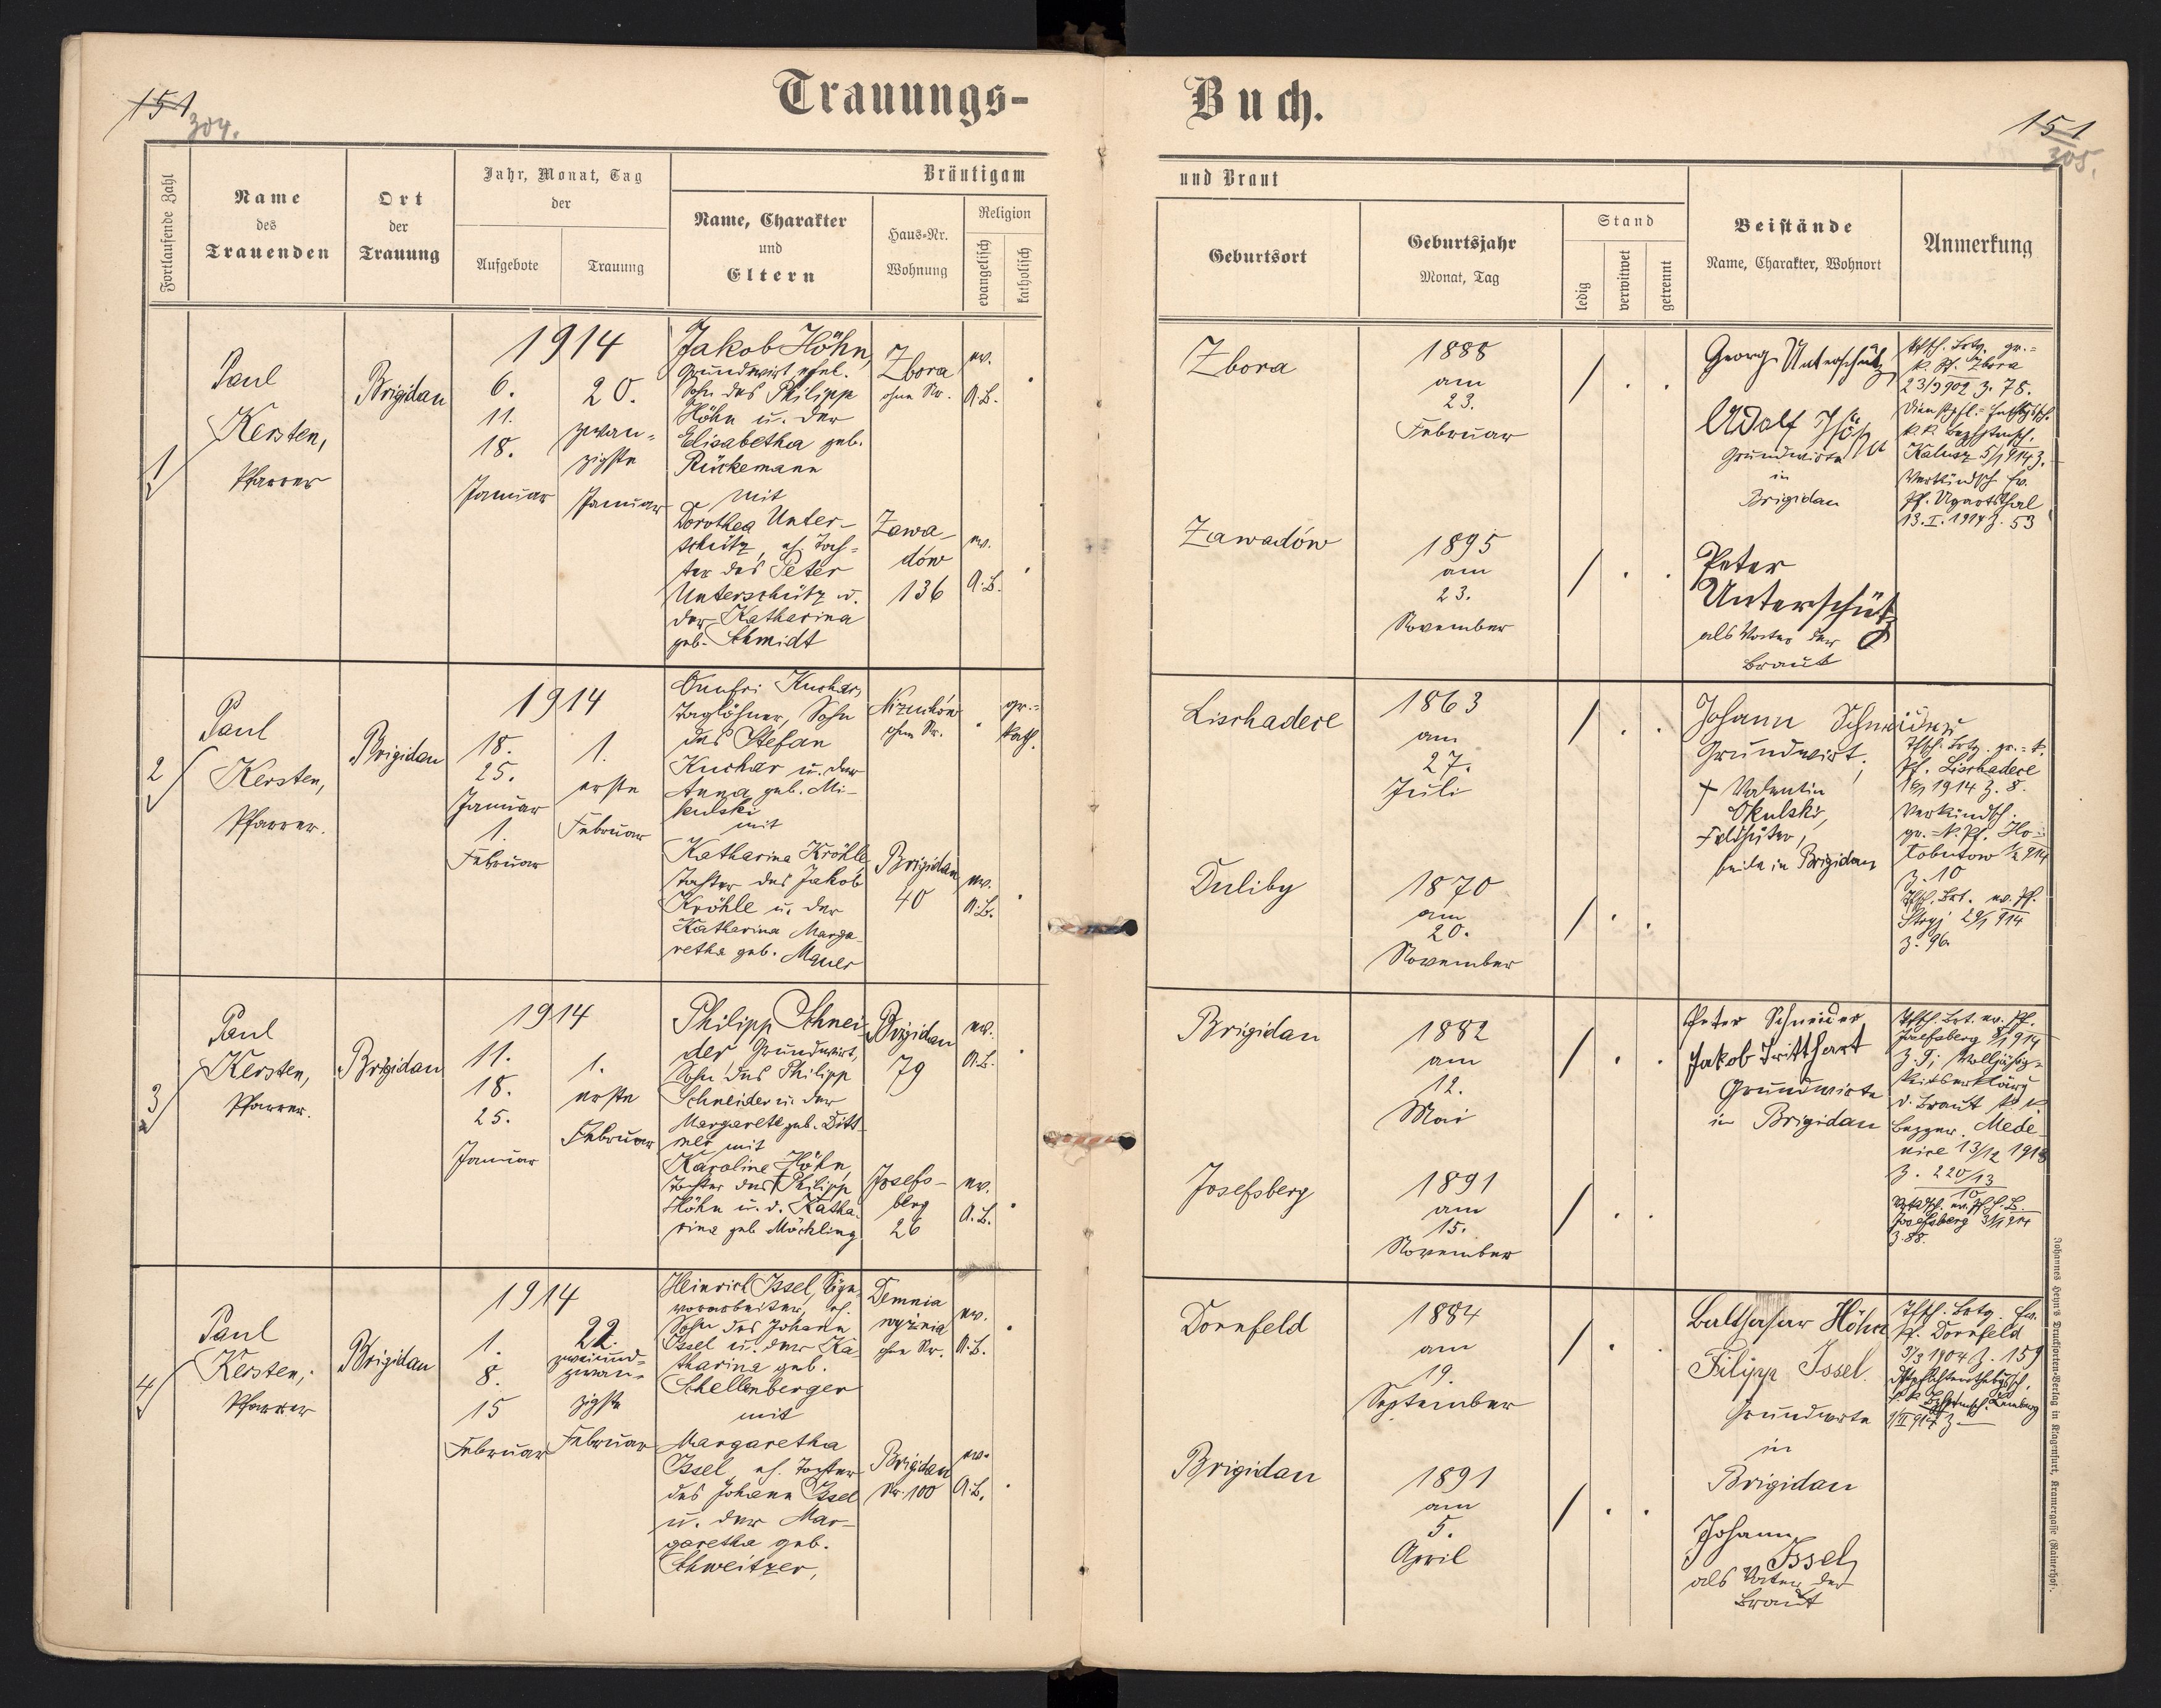 Trauungs-
Buch.
151
304.
151
305.
Fortlaufende Zahl
Name
des
Trauenden
Ort
der
Trauung
Jahr, Monat, Tag
der
Aufgebote
Trauung
Bräutigam
Name, Charakter
und
Eltern
Haus-Nr.
Wohnung
Religion
evangelisch
katholisch
und Braut
Geburtsort
Geburtsjahr
Monat, Tag
Stand
ledig
verwitwet
getrennt
Beistände
Name, Charakter, Wohnort
Anmerkung
1
Paul
Kersten,
Pfarrer
Brigidau
1914
6.
11.
18.
Januar
20.
zwan-
zigste
Januar
Jakob Höhn,
Grundwirt, ehel.
Sohn des Philipp
Höhn u. der
Elisabetha geb.
Rückemann
mit
Dorothea Unter-
schütz, eh. Toch-
ter des Peter
Unterschütz u.
der Katharina
geb. Schmidt
Zbora
ohne Nr.
Zawa-
dów
136
ev.
A.B.
ev.
A.B.
Zbora
1888
am
23.
Februar
Zawadów
1895
am
23.
November
Georg Unterschütz
Adolf Höhn
Grundwirte
in
Brigidau
Peter
Unterschütz
als Vater der
Braut
gr.=
k. Pf. Zbora
23/9 902 Z. 78.
Kalusz 5/1 914 Z.
Verkündsch. Ev.
Pf. Ugartsthal
13. I. 1914 Z. 53
2
Paul
Kersten,
Pfarrer.
Brigidau
1914
18.
25.
Januar
1.
Februar
1.
erste
Februar
Onufri Kuchar,
Taglöhner, Sohn
des Stefan
Kuchar u. der
Anna geb. Mi-
kulski
mit
Katharina Kröhle
Tochter des Jakob
Kröhle u. der
Katharina Marga-
retha geb. Mauer
ohne Nr.
Brigidau
40
gr.=
kath.
ev.
A.B.
Lischadere
1863
am
27.
Juli
Duliby
1870
am
20.
November
Johann Schneider
Grundwirt,
† Valentin
Okulski,
Feldhüter,
beide in Brigidau
gr.=k.
Pf. Lischadere
1914 Z. 8.
Verkündsch.
gr.=k. Pf. Ho-
lobutow 1/2 914
Z. 10
ev. Pf.
Stryj 29/1 914
Z. 96.
3
Paul
Kersten,
Pfarrer.
Brigidau
1914
11.
18.
25.
Januar
1.
erste
Februar
Philipp Schnei-
der Grundwirt,
Sohn des Philipp
Schneider u. der
Margarete geb. Ditt-
mer mit
Karoline Höhn,
Tochter des Philipp
Höhn u. d. Katha-
rina geb. Möchling
Brigidau
79
Josefs-
berg
26
ev.
A.B.
ev.
A.B.
Brigidau
1882
am
12.
Mai
Josefsberg
1891
am
15.
November
Peter Schneider
Jakob Tritthart
Grundwirte
in Brigidau
ev. Pf.
Josefsberg 914
Volljährig-
keitserklärg
d. Braut k. k.
Bezger. Mede-
nice 13/12 1913
Z. 220/13
10
Josefsberg 31/1 914
Z. 88.
4
Paul
Kersten,
Pfarrer
Brigidau
1914
1.
8.
15
Februar
22.
zweiund-
zwan-
zigste
Februar
Heinrich Issel, Säge-
vorarbeiter, eh.
Sohn des Johann
Issel u. der Ka-
tharina geb.
Schellenberger
mit
Margaretha
Issel eh. Tochter
des Johann Issel
u. der Mar-
garetha geb.
Schweitzer,
Demnia
wyżnia
ohne Nr.
Brigidau
Nr. 100
ev.
A.B.
ev.
A.B.
Dornfeld
1884
am
19.
September
Brigidau
1891
am
5.
April
Balthasar Höhn
Filipp Issel.
Grundwirte
in
Brigidau
Johann
Issel
als Vater der
Braut
Ev.
Pf. Dornfeld
3/3 1904 Z. 159
Lemberg
Johannes Heyn's Drucksorten-Verlag in Klagenfurt, Kramergasse (Rainerhof).